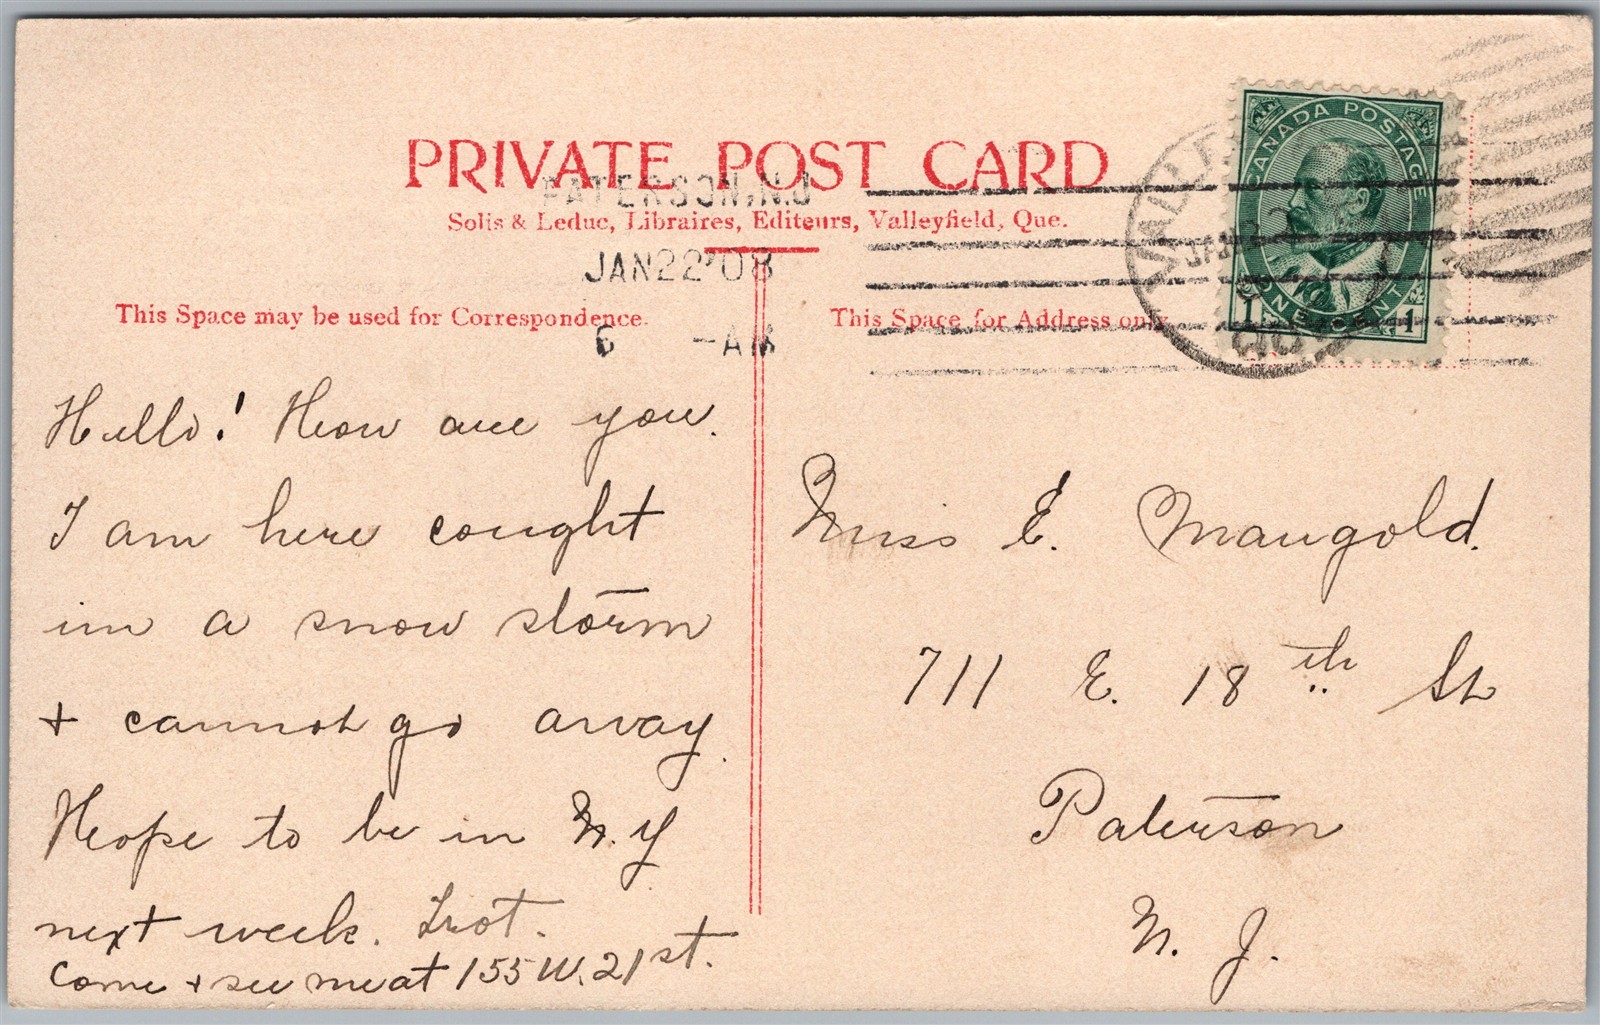 PRIVATE POST CARD
PATERSON, N.J.
Solis & Leduc, Libraires, Editeurs, Valleyfield, Que.
JAN 22 '08
6 -AM
This Space may be used for Correspondence.
This Space for Address only
CANADA POSTAGE
1 ONE CENT 1
Hello! How are you.
I am here cought
in a snow storm
+ cannot go away.
Hope to be in N.Y
next week.
Come + see me at 155 W. 21st.
Miss E. Mangold.
711 E. 18th St
Paterson
N. J.